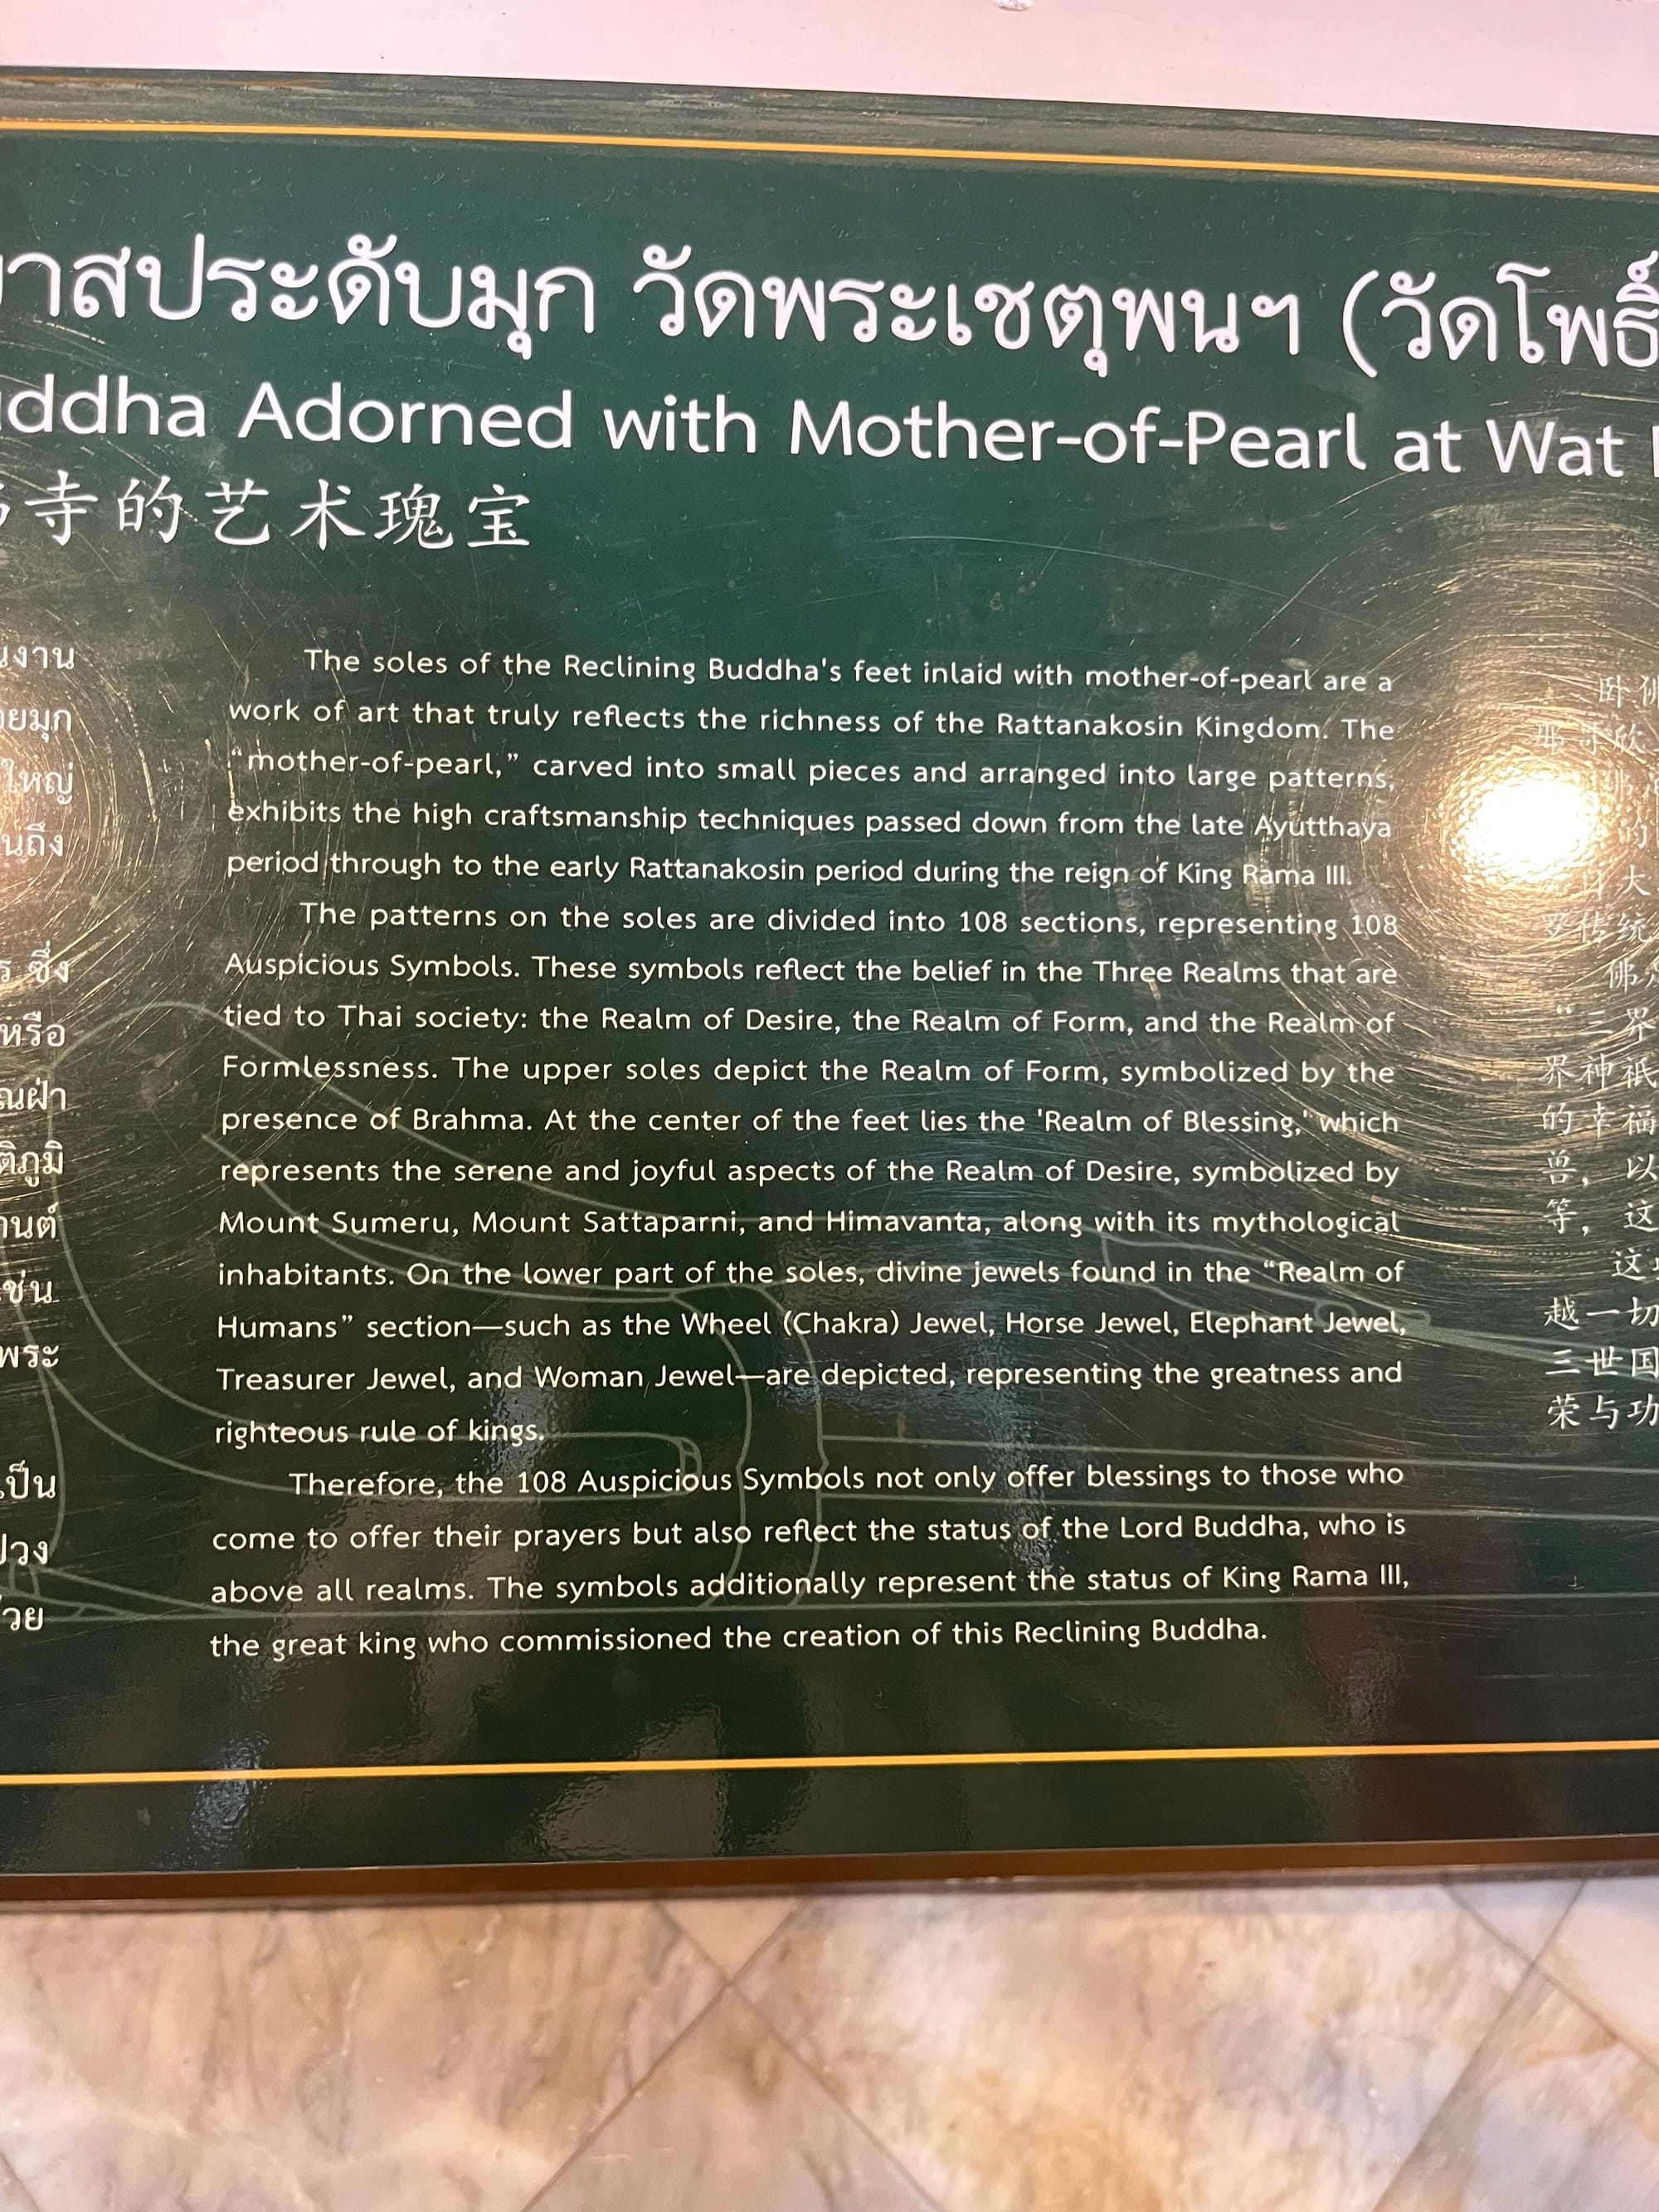 าสประดับมุก วัดพระเชตุพนฯ (วัดโพธิ์
uddha Adorned with Mother-of-Pearl at Wat
寺的艺术瑰宝
นงาน
ยมุก
ใหญ่
นถึง
ร ซึ่ง
หรือ
ณฝ่า
ติภูมิ
านต์
เช่น
พระ
เป็น
ปวง
วย
The soles of the Reclining Buddha's feet inlaid with mother-of-pearl are a
work of art that truly reflects the richness of the Rattanakosin Kingdom. The
“mother-of-pearl,” carved into small pieces and arranged into large patterns,
exhibits the high craftsmanship techniques passed down from the late Ayutthaya
period through to the early Rattanakosin period during the reign of King Rama III.
The patterns on the soles are divided into 108 sections, representing 108
Auspicious Symbols. These symbols reflect the belief in the Three Realms that are
tied to Thai society: the Realm of Desire, the Realm of Form, and the Realm of
Formlessness. The upper soles depict the Realm of Form, symbolized by the
presence of Brahma. At the center of the feet lies the 'Realm of Blessing,' which
represents the serene and joyful aspects of the Realm of Desire, symbolized by
Mount Sumeru, Mount Sattaparni, and Himavanta, along with its mythological
inhabitants. On the lower part of the soles, divine jewels found in the “Realm of
Humans” section—such as the Wheel (Chakra) Jewel, Horse Jewel, Elephant Jewel,
Treasurer Jewel, and Woman Jewel—are depicted, representing the greatness and
righteous rule of kings.
Therefore, the 108 Auspicious Symbols not only offer blessings to those who
come to offer their prayers but also reflect the status of the Lord Buddha, who is
above all realms. The symbols additionally represent the status of King Rama III,
the great king who commissioned the creation of this Reclining Buddha.
卧佛
的
大
罗传统
佛
“三界
界神祇
的幸福
兽，以
等，这
这
越一切
三世国
荣与功